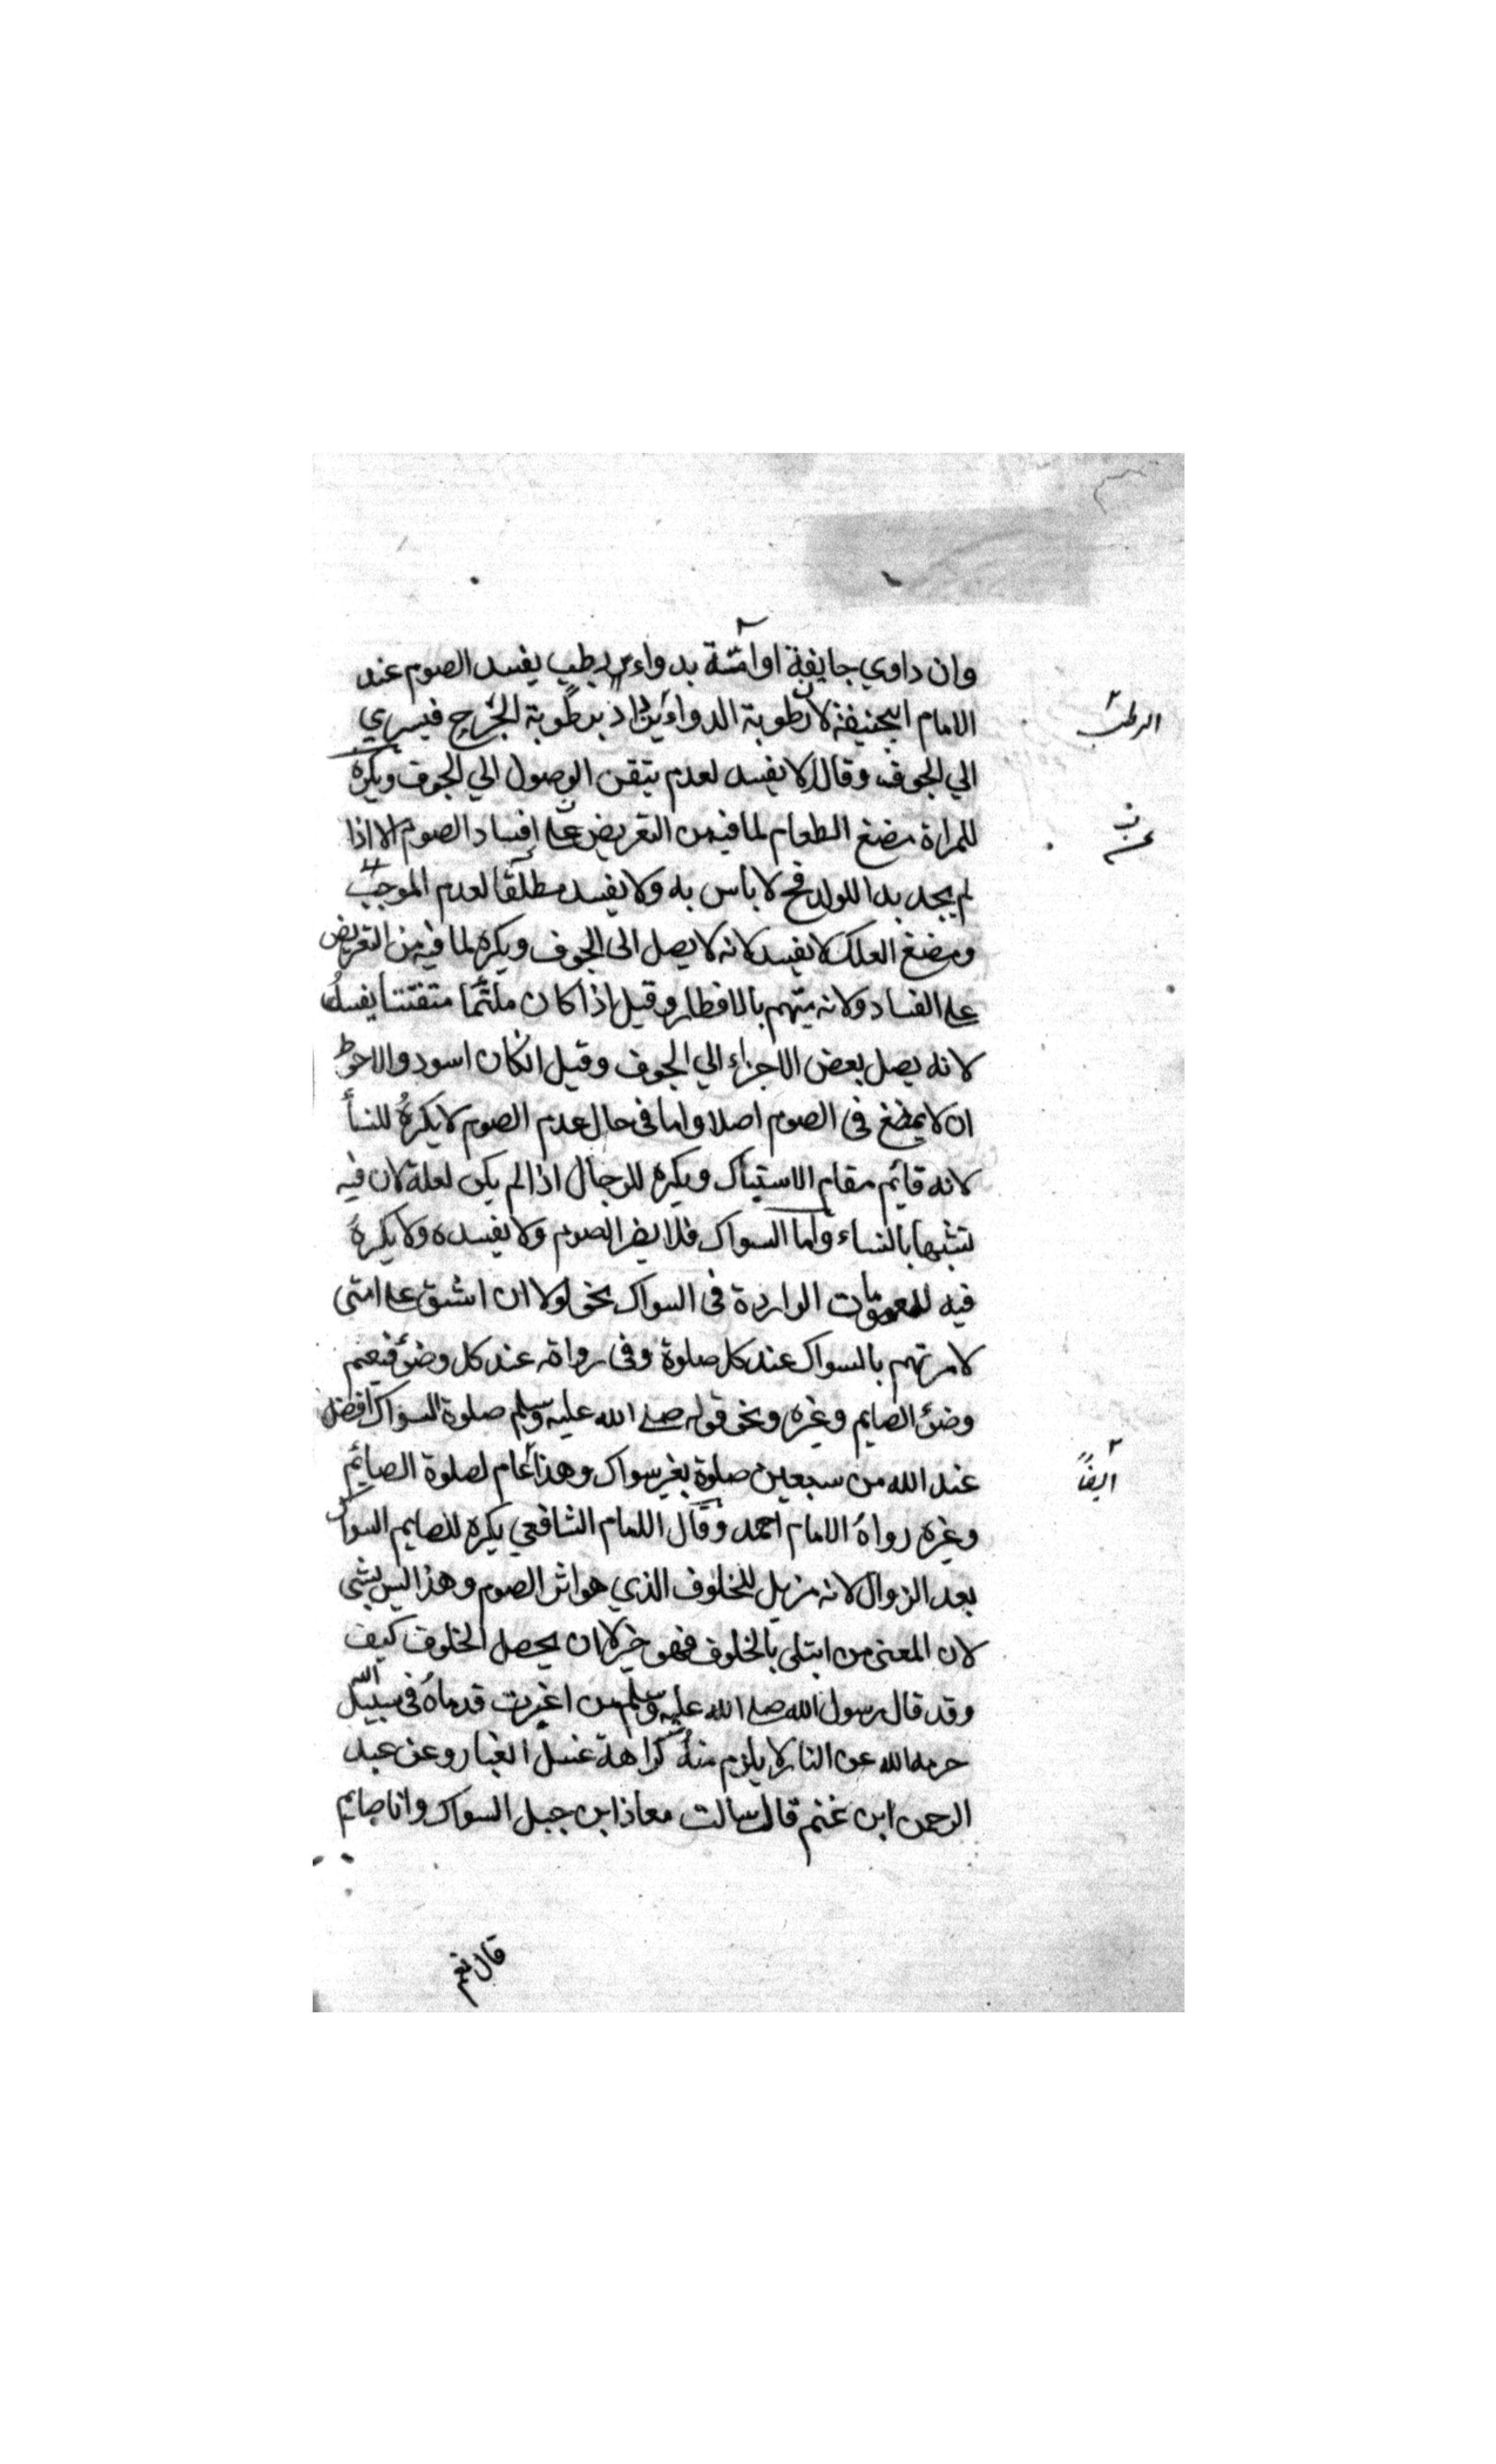 وان داوي جايفة او آمة بدواء رطب يفسد الصوم عند
الامام ابيحنيفة لان رطوبة الدواء يزداد برطوبة الجرح فيسري
الرطب
الي الجوف وقالا لا يفسد لعدم يتقن الوصول الي الجوف ويكره
للمراة مضغ الطعام لما فيه من التعريض على افساد الصوم الا اذا
لم يجد بدا للولد فح لا باس به ولا يفسد مطلقا لعدم الموجب
ومضغ العلك لا يفسد لانه لا يصل الى الجوف ويكره لما فيه من التعريض
على الفساد ولانه يتهم بالافطار وقيل اذا كان ملتئما متفتتا يفسد
لانه يصل بعض الاجزاء الي الجوف وقيل انكان اسود والاحوط
ان لا يمضغ في الصوم اصلا واما في حال عدم الصوم لا يكره للنسأ
لانه قائم مقام الاستياك ويكره للرجال اذا لم يكن لعلة لان فيه
تشبها بالنساء واما السواك فلا يضر الصوم ولا يفسده ولا يكره
فيه للعمومات الواردة فى السواك نحو لولا ان اشق على امتى
لامرتهم بالسواك عند كل صلوة وفى رواة عند كل وضئ فيعم
وضئ الصايم وغيره ونحو قوله صلى الله عليه وسلم صلوة السواك افضل
عند الله من سبعين صلوة بغير سواك وهذا عام لصلوة الصائم
ايضاً
وغيره رواه الامام احمد وقال الامام الشافعي يكره للصايم السواك
بعد الزوال لانه مزيل للخلوف الذي هو اثر الصوم وهذا ليس بشى
لان المعنى من ابتلى بالخلوف فهو خير لا ان يحصل الخلوف كيف
وقد قال رسول الله صلى الله عليه وسلم من اغبرت قدماه فى سبيل الله
حرمه الله عن النار لا يلزم منه كراهة غسل الغبار وعن عبد
الرحمن ابن غنم قال سالت معاذ ابن جبل السواك وانا صايم
قال نعم